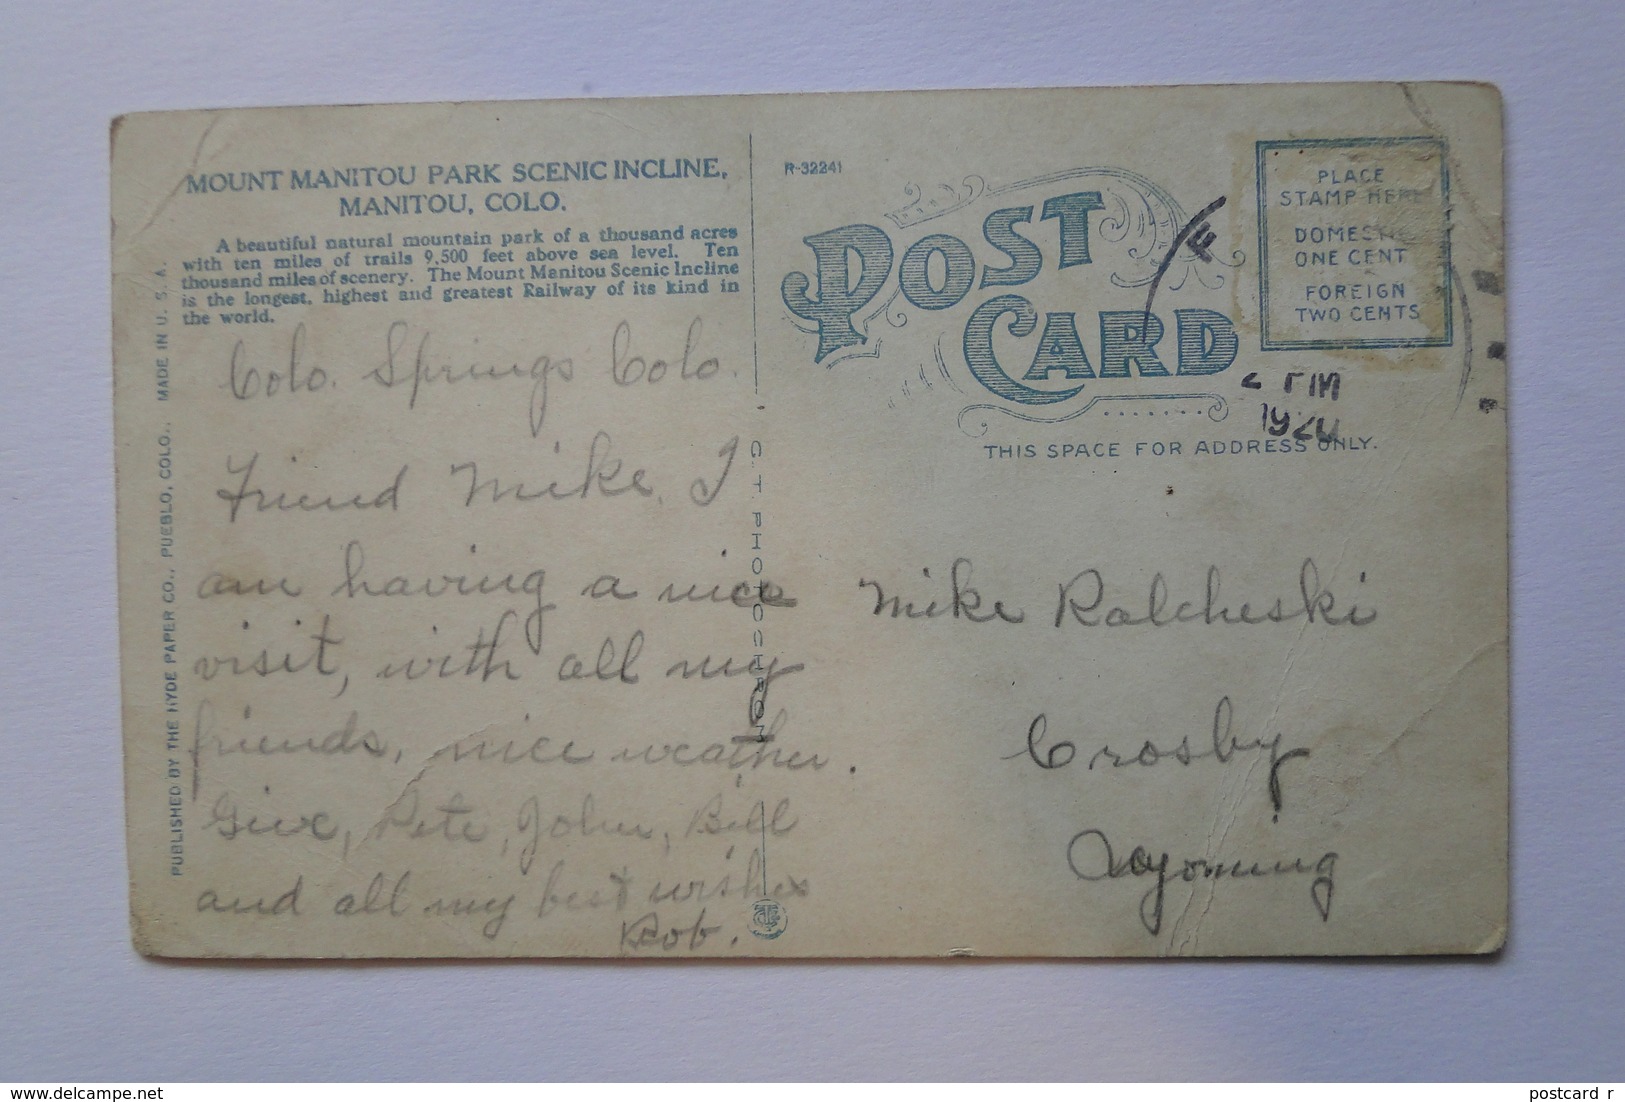 MOUNT MANITOU PARK SCENIC INCLINE,
MANITOU, COLO.
A beautiful natural mountain park of a thousand acres
with ten miles of trails 9,500 feet above sea level. Ten
thousand miles of scenery. The Mount Manitou Scenic Incline
is the longest, highest and greatest Railway of its kind in
the world.
Colo. Springs Colo.
Friend Mike, I
am having a nice
visit, with all my
friends, nice weather.
Give, Pete, John, Bill
and all my best wishes
Rob.
PUBLISHED BY THE HYDE PAPER CO., PUEBLO, COLO., MADE IN U. S. A.
C. T. PHOTOCHROM
R-32241
POST
CARD
PLACE
STAMP HERE
DOMESTIC
ONE CENT
FOREIGN
TWO CENTS
PM
192
THIS SPACE FOR ADDRESS ONLY.
Mike Ralcheski
Crosby
Wyoming
delcampe.net
postcard_r